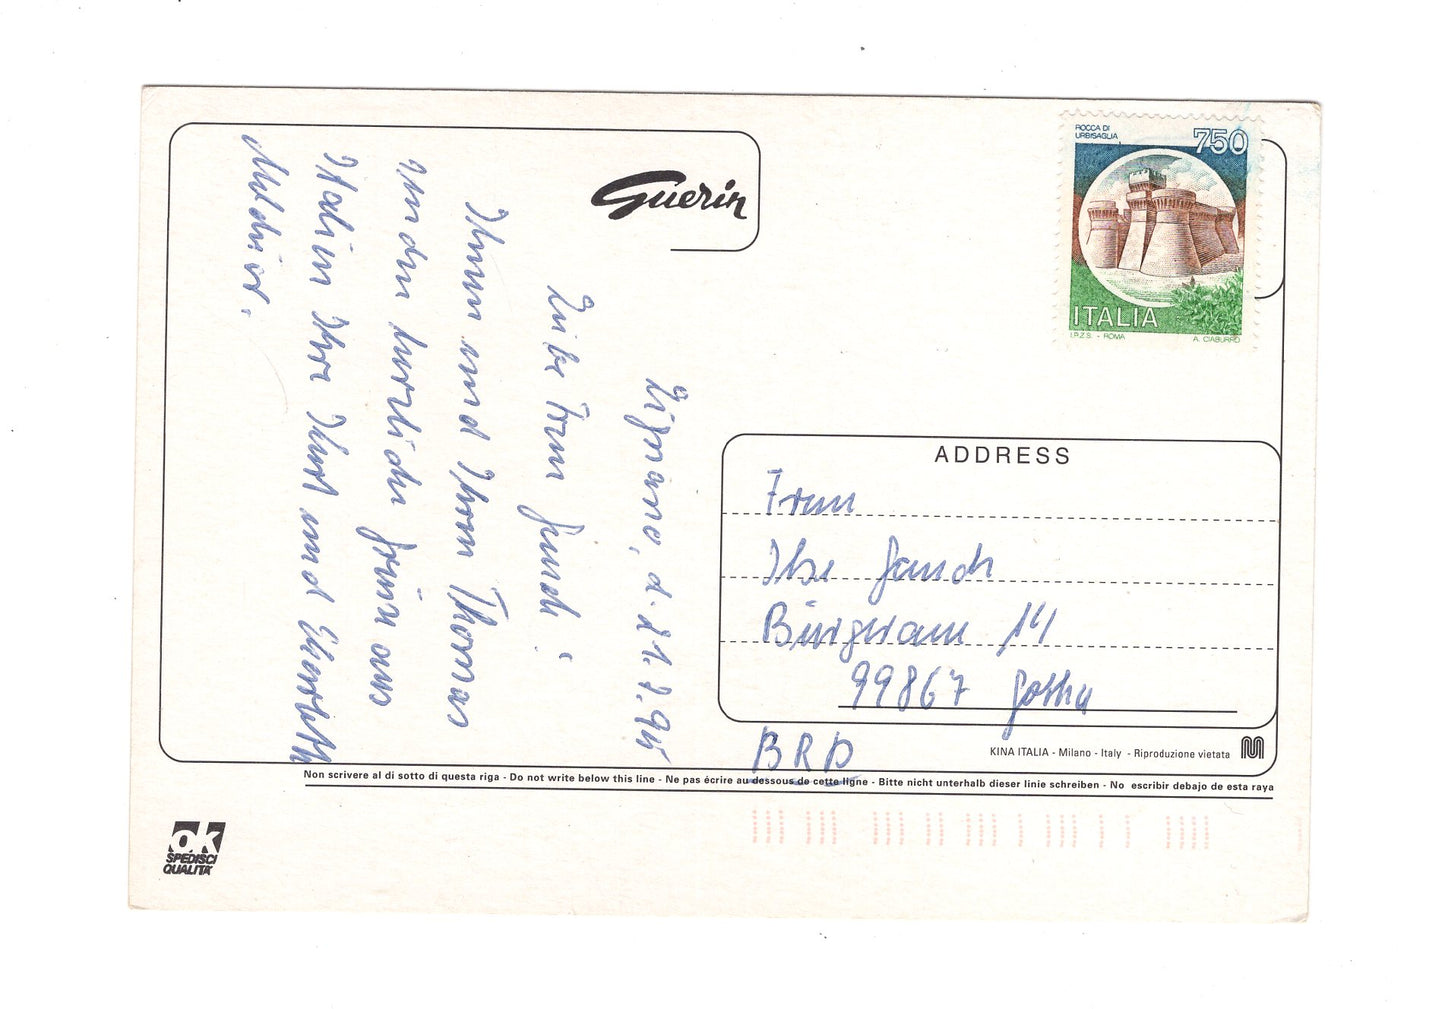 Guerin
Lignano, d. 21.7.95
Liebe Frau Jauch!
Ihnen und Ihrem Thomas
senden herzliche Grüße aus
Italien Ihre
und
ROCCA DI
URBISAGLIA
750
ITALIA
I.P.Z.S. - ROMA
A. CIABURRO
ADDRESS
Frau
Ilse Jauch
Bürgeraue 14
99867 Gotha
BRD
KINA ITALIA - Milano - Italy - Riproduzione vietata
Non scrivere al di sotto di questa riga - Do not write below this line - Ne pas écrire au dessous de cette ligne - Bitte nicht unterhalb dieser linie schreiben - No escribir debajo de esta raya
ok
SPEDISCI
QUALITA'